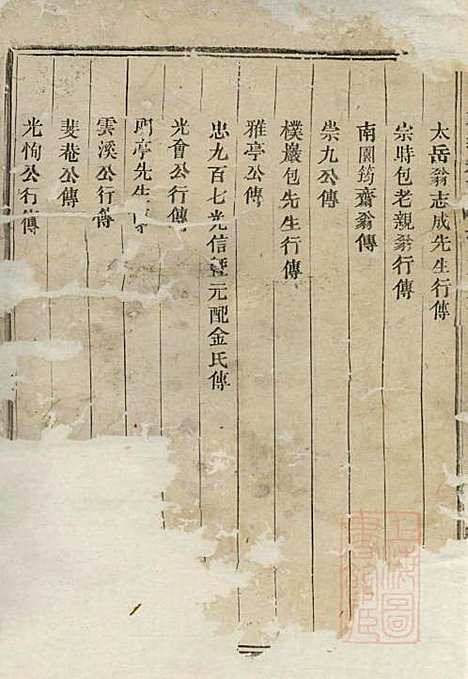 太岳翁志成先生行傳
宗時包老親翁行傳
南園筠齋翁傳
崇九公傳
樸巖包先生行傳
雅亭公傳
忠九百七光信暨元配金氏傳
光會公行傳
明亭先生傳
雲溪公行傳
斐菴公傳
光恂公行傳
上海圖書館藏